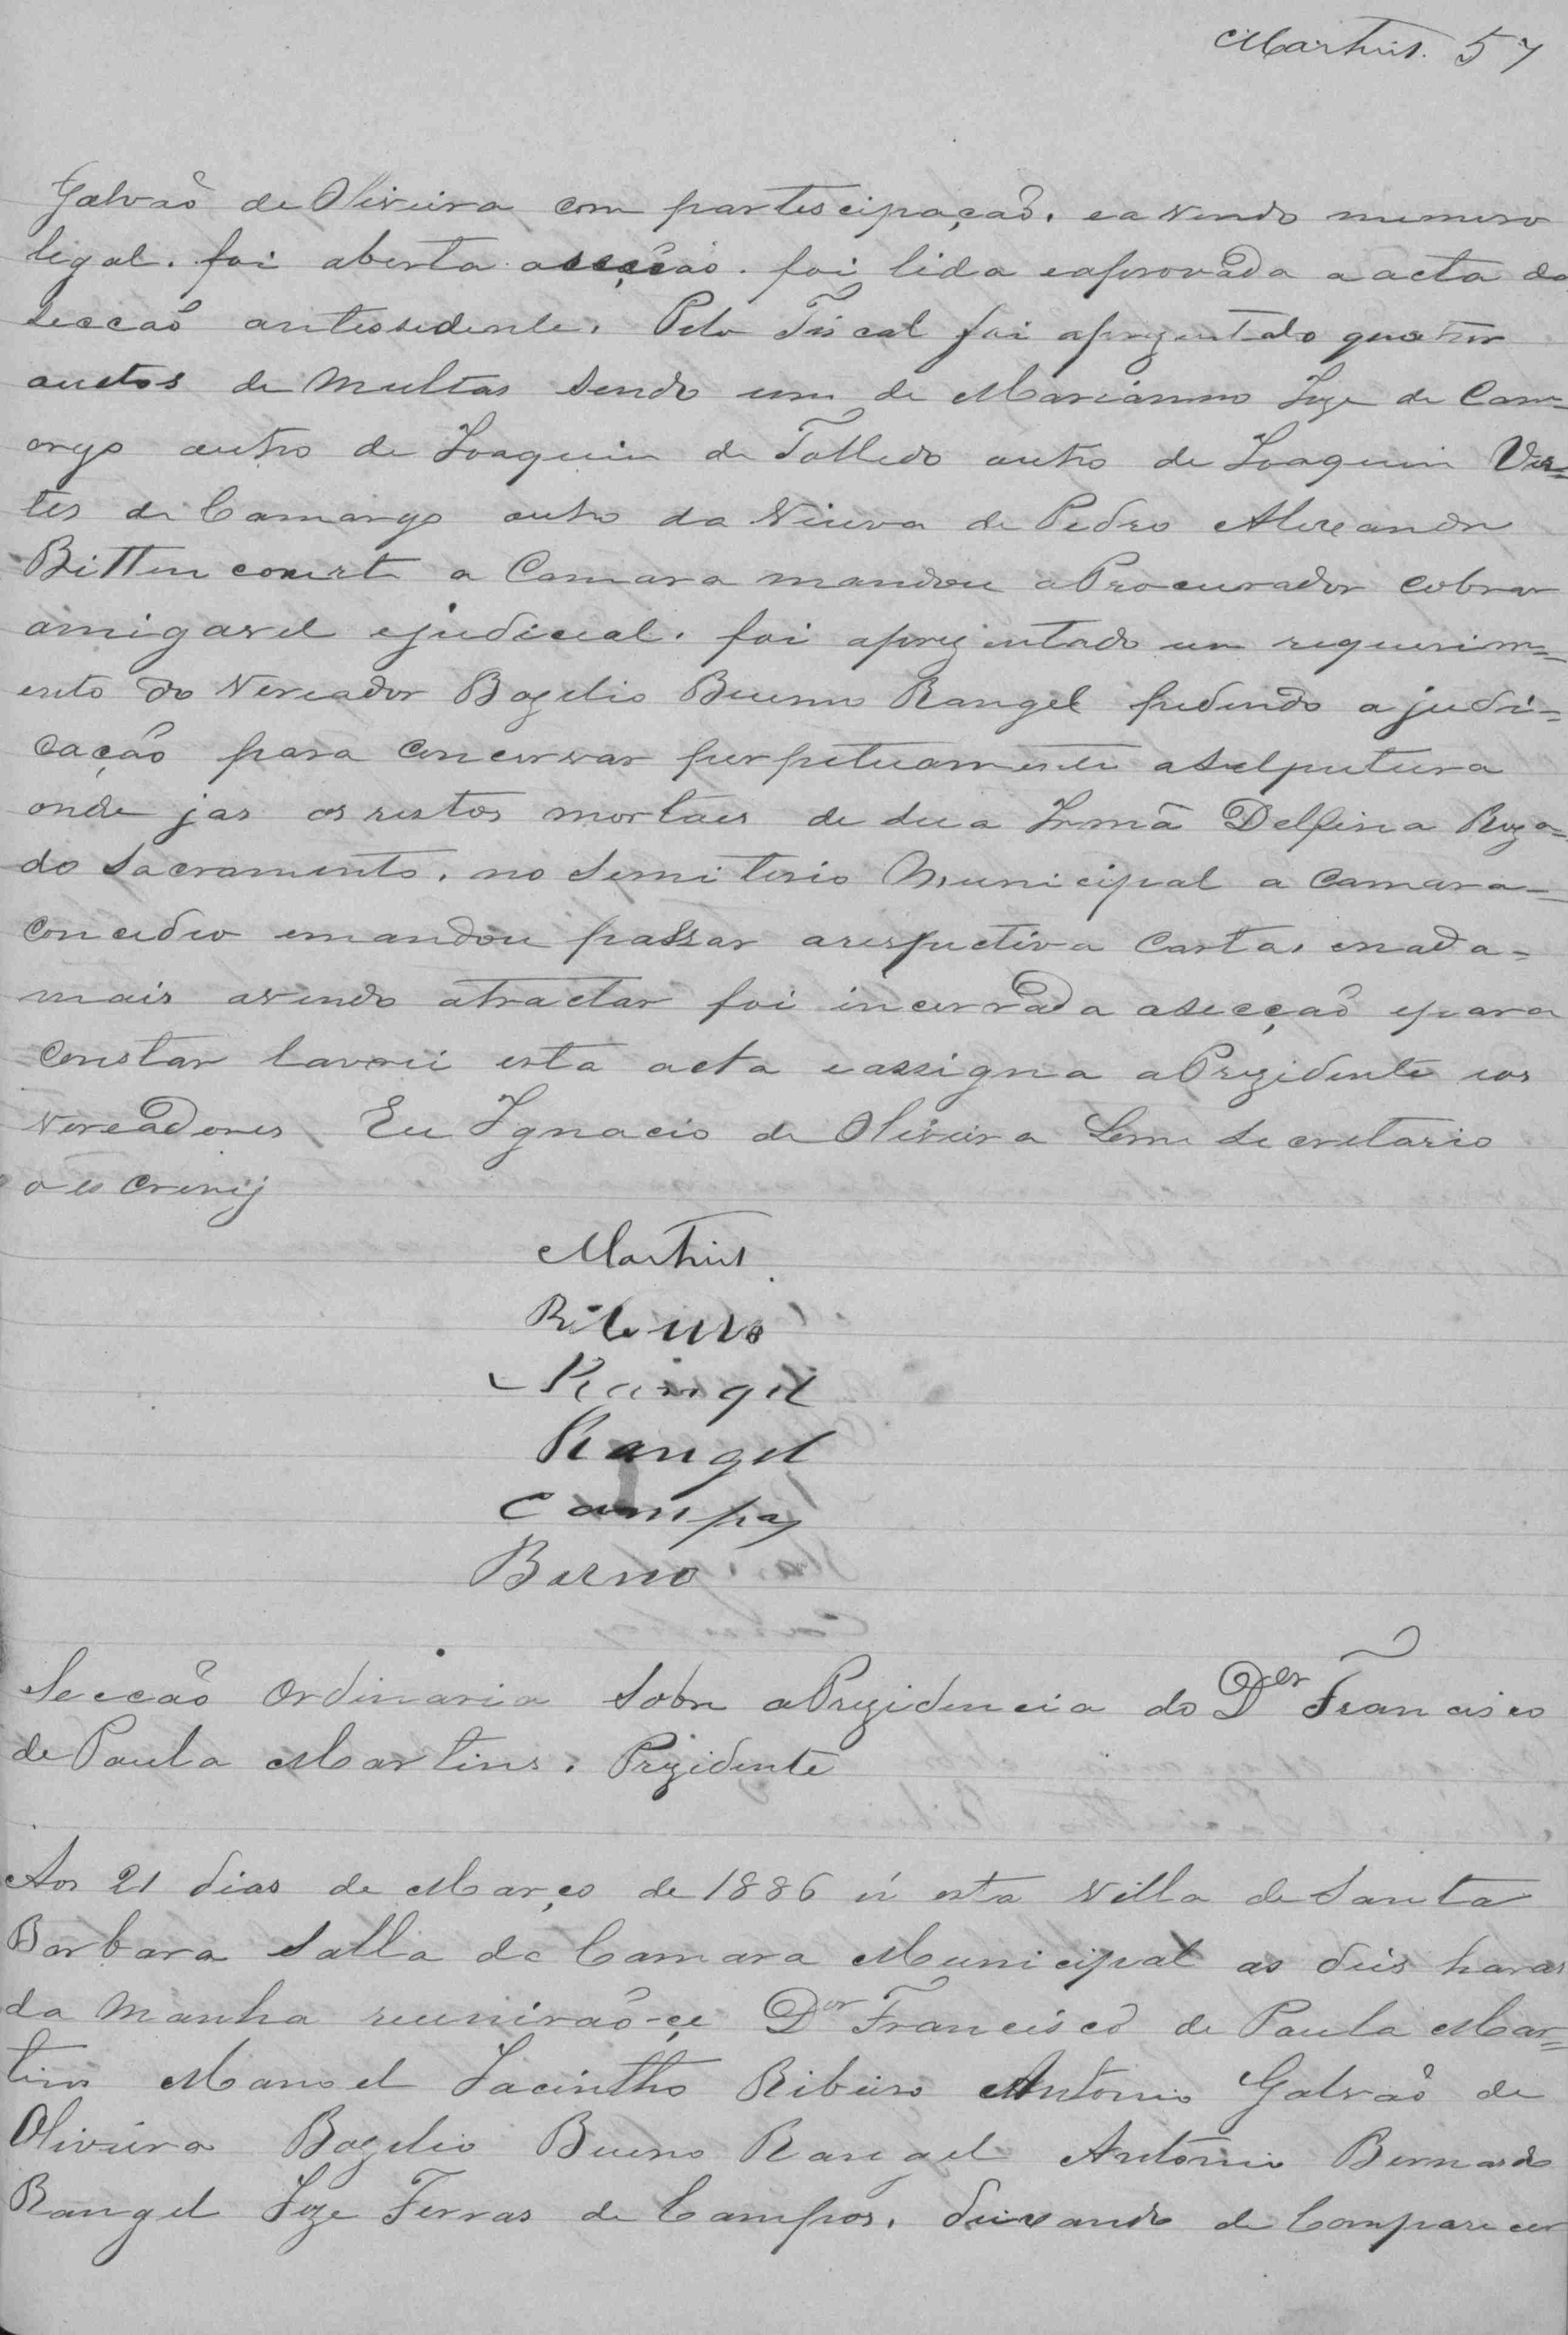 Martins. 57
Galvaõ de Oliveira com partescipaçaõ. ea vendo numero
ligal. foi aberta asecçaõ. foi lida eaprovada a acta da
Secçaõ antessedente. Pelo Fiscal foi aprezentado quatro
auctos de Multas Sendo um de Marianno Joze de Cam=
argo outro de Joaquim de Tolledo outro de Joaquim Ver=
tes de Camargo outro da Viuva de Pedro Alexandre
Bittencourt a Camara mandou oProcurador cobrar
amigavel ejudicial. foi aprezentado um requerim=
ento do Vereador Bazelio Bueno Rangel pedindo ajudi=
cação para Concervar perpetuamente aSelputura
onde jas os restos mortaes de Sua Irmã Delfina Roza=
do Sacramento. no Semiterio Municipal a Camara=
concedeo emandou passar arespectiva Carta. enada=
mais avendo atractar foi incerrada asecçaõ epara
Constar lavrei esta acta eassigna oPrezidente eos
Vereadores Eu Ignacio de Oliveira Leme Secretario
o es crevij
Martins.
Ribeiro
Rangel
Rangel
Campos
Berno
Secçaõ Ordinaria Sobre aPrezidencia do Dor Francisco
de Paula Martins. Prezidente
Aos 21 dias de Março de 1886 n'esta Villa de Santa
Barbara Salla da Camara Municipal as deis horas
da Manha reuniraõ-çe Dor Francisco de Paula Mar=
tins Manoel Jacintho Ribeiro Antonio Galvaõ de
Oliveira Bazelio Bueno Rangel Antonio Bernardo
Rangel Joze Ferras de Campos. deixando de Comparecer